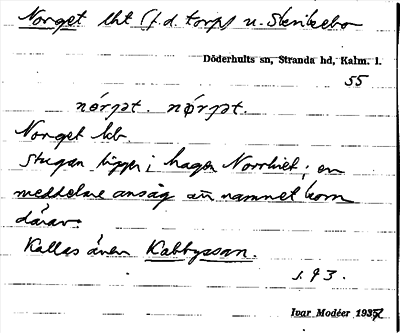 Norget lht (f.d. torp) u. Skrikebo
Döderhults sn, Stranda hd, Kalm. l.
55
nórjət. nǿrjət.
Norget kb
Stugan ligger i hagen Norrhiet; en
meddelare ansåg att namnet kom
därav.
Kallas även Kabbyssan.
s. 93.
Ivar Modéer 1932